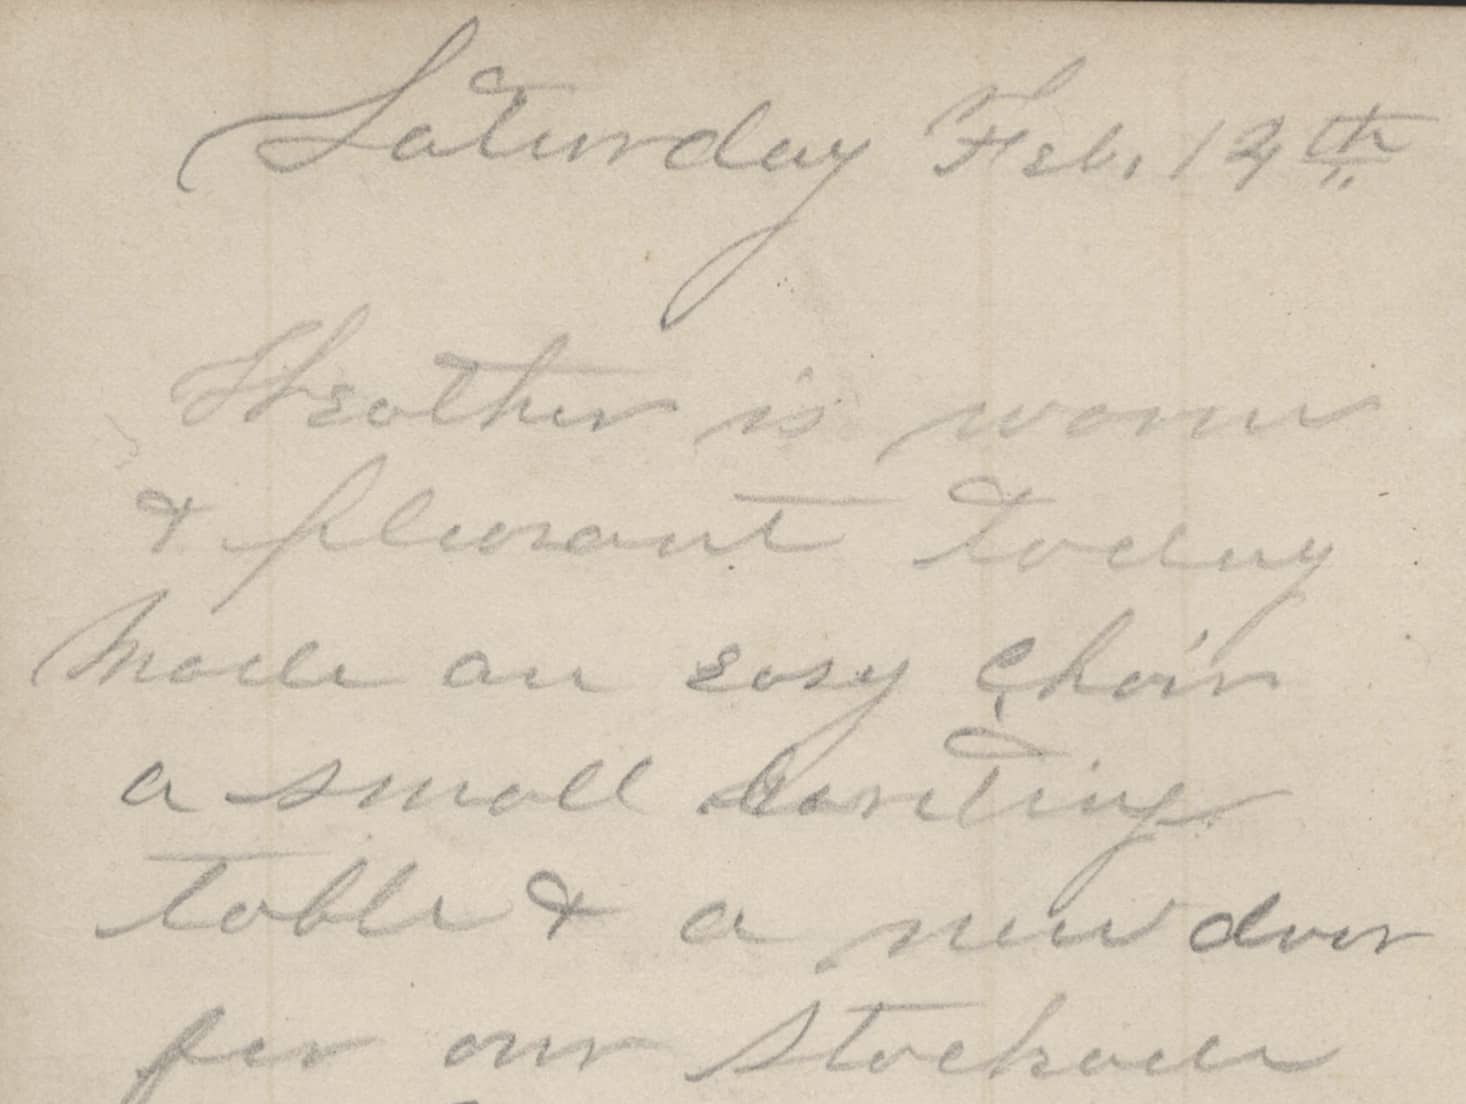 Saturday Feb.
Weather is warm
& pleasant today
Made an easy chair
a small writing
table & a new door
for our Stockade